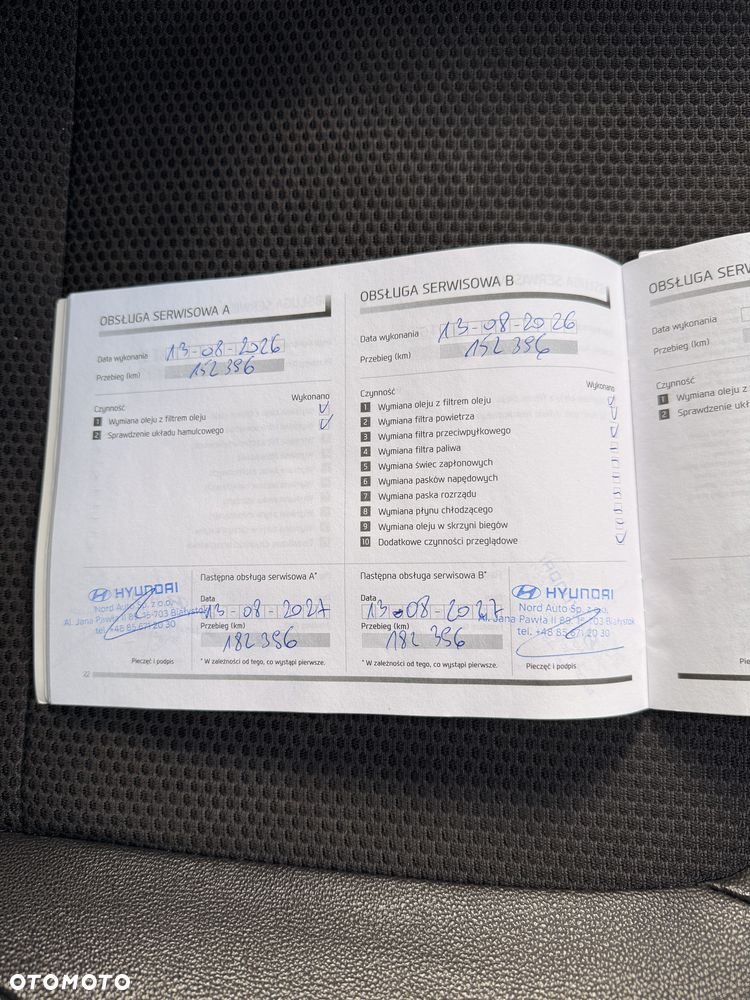 OBSŁUGA SERWISOWA A
Data wykonania 13-08-2026
Przebieg (km) 152 396
Czynność Wykonano
1 Wymiana oleju z filtrem oleju
2 Sprawdzenie układu hamulcowego
HYUNDAI
Nord Auto Sp. z o.o.
Al. Jana Pawła II 89, 15-703 Białystok
tel. +48 85 671 20 30
Pieczęć i podpis
Następna obsługa serwisowa A*
Data
13-08-2027
Przebieg (km)
182 396
* W zależności od tego, co wystąpi pierwsze.
22
OBSŁUGA SERWISOWA B
Data wykonania 13-08-2026
Przebieg (km) 152 396
Czynność Wykonano
1 Wymiana oleju z filtrem oleju
2 Wymiana filtra powietrza
3 Wymiana filtra przeciwpyłkowego
4 Wymiana filtra paliwa
5 Wymiana świec zapłonowych
6 Wymiana pasków napędowych
7 Wymiana paska rozrządu
8 Wymiana płynu chłodzącego
9 Wymiana oleju w skrzyni biegów
10 Dodatkowe czynności przeglądowe
Następna obsługa serwisowa B*
Data
13-08-2027
Przebieg (km)
182 396
* W zależności od tego, co wystąpi pierwsze.
HYUNDAI
Nord Auto Sp. z o.o.
Al. Jana Pawła II 89, 15-703 Białystok
tel. +48 85 671 20 30
Pieczęć i podpis
OBSŁUGA SERW
Data wykonania
Przebieg (km)
Czynność
1 Wymiana oleju z
2 Sprawdzenie ukł
Pie
OTOMOTO